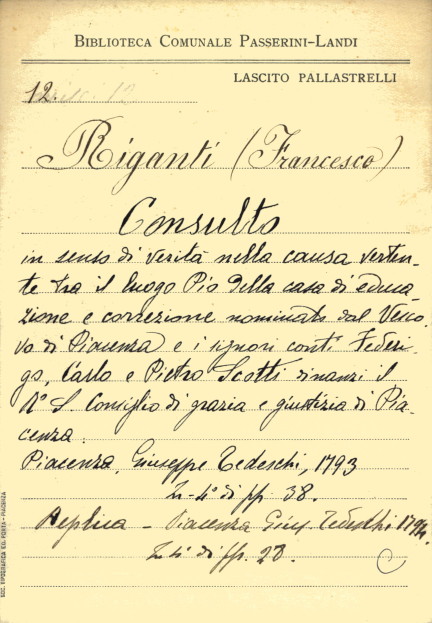 BIBLIOTECA COMUNALE PASSERINI-LANDI
LASCITO PALLASTRELLI
12
Riganti (Francesco)
Consulto
in senso di verità nella causa verten-
te tra il luogo Pio della casa di educa
zione e correzione nominata dal Vesco
vo di Piacenza e i signori conti Federi-
go, Carlo e Pietro Scotti dinanzi il
R° S. Consiglio di grazia e giustizia di Pia-
cenza.
Piacenza, Giuseppe Tedeschi, 1793
In-4° di pp. 38.
Replica - Piacenza Gius. Tedeschi 1794.
In 4° di pp. 28.
SOC. TIPOGRAFICA ED. PORTA - PIACENZA